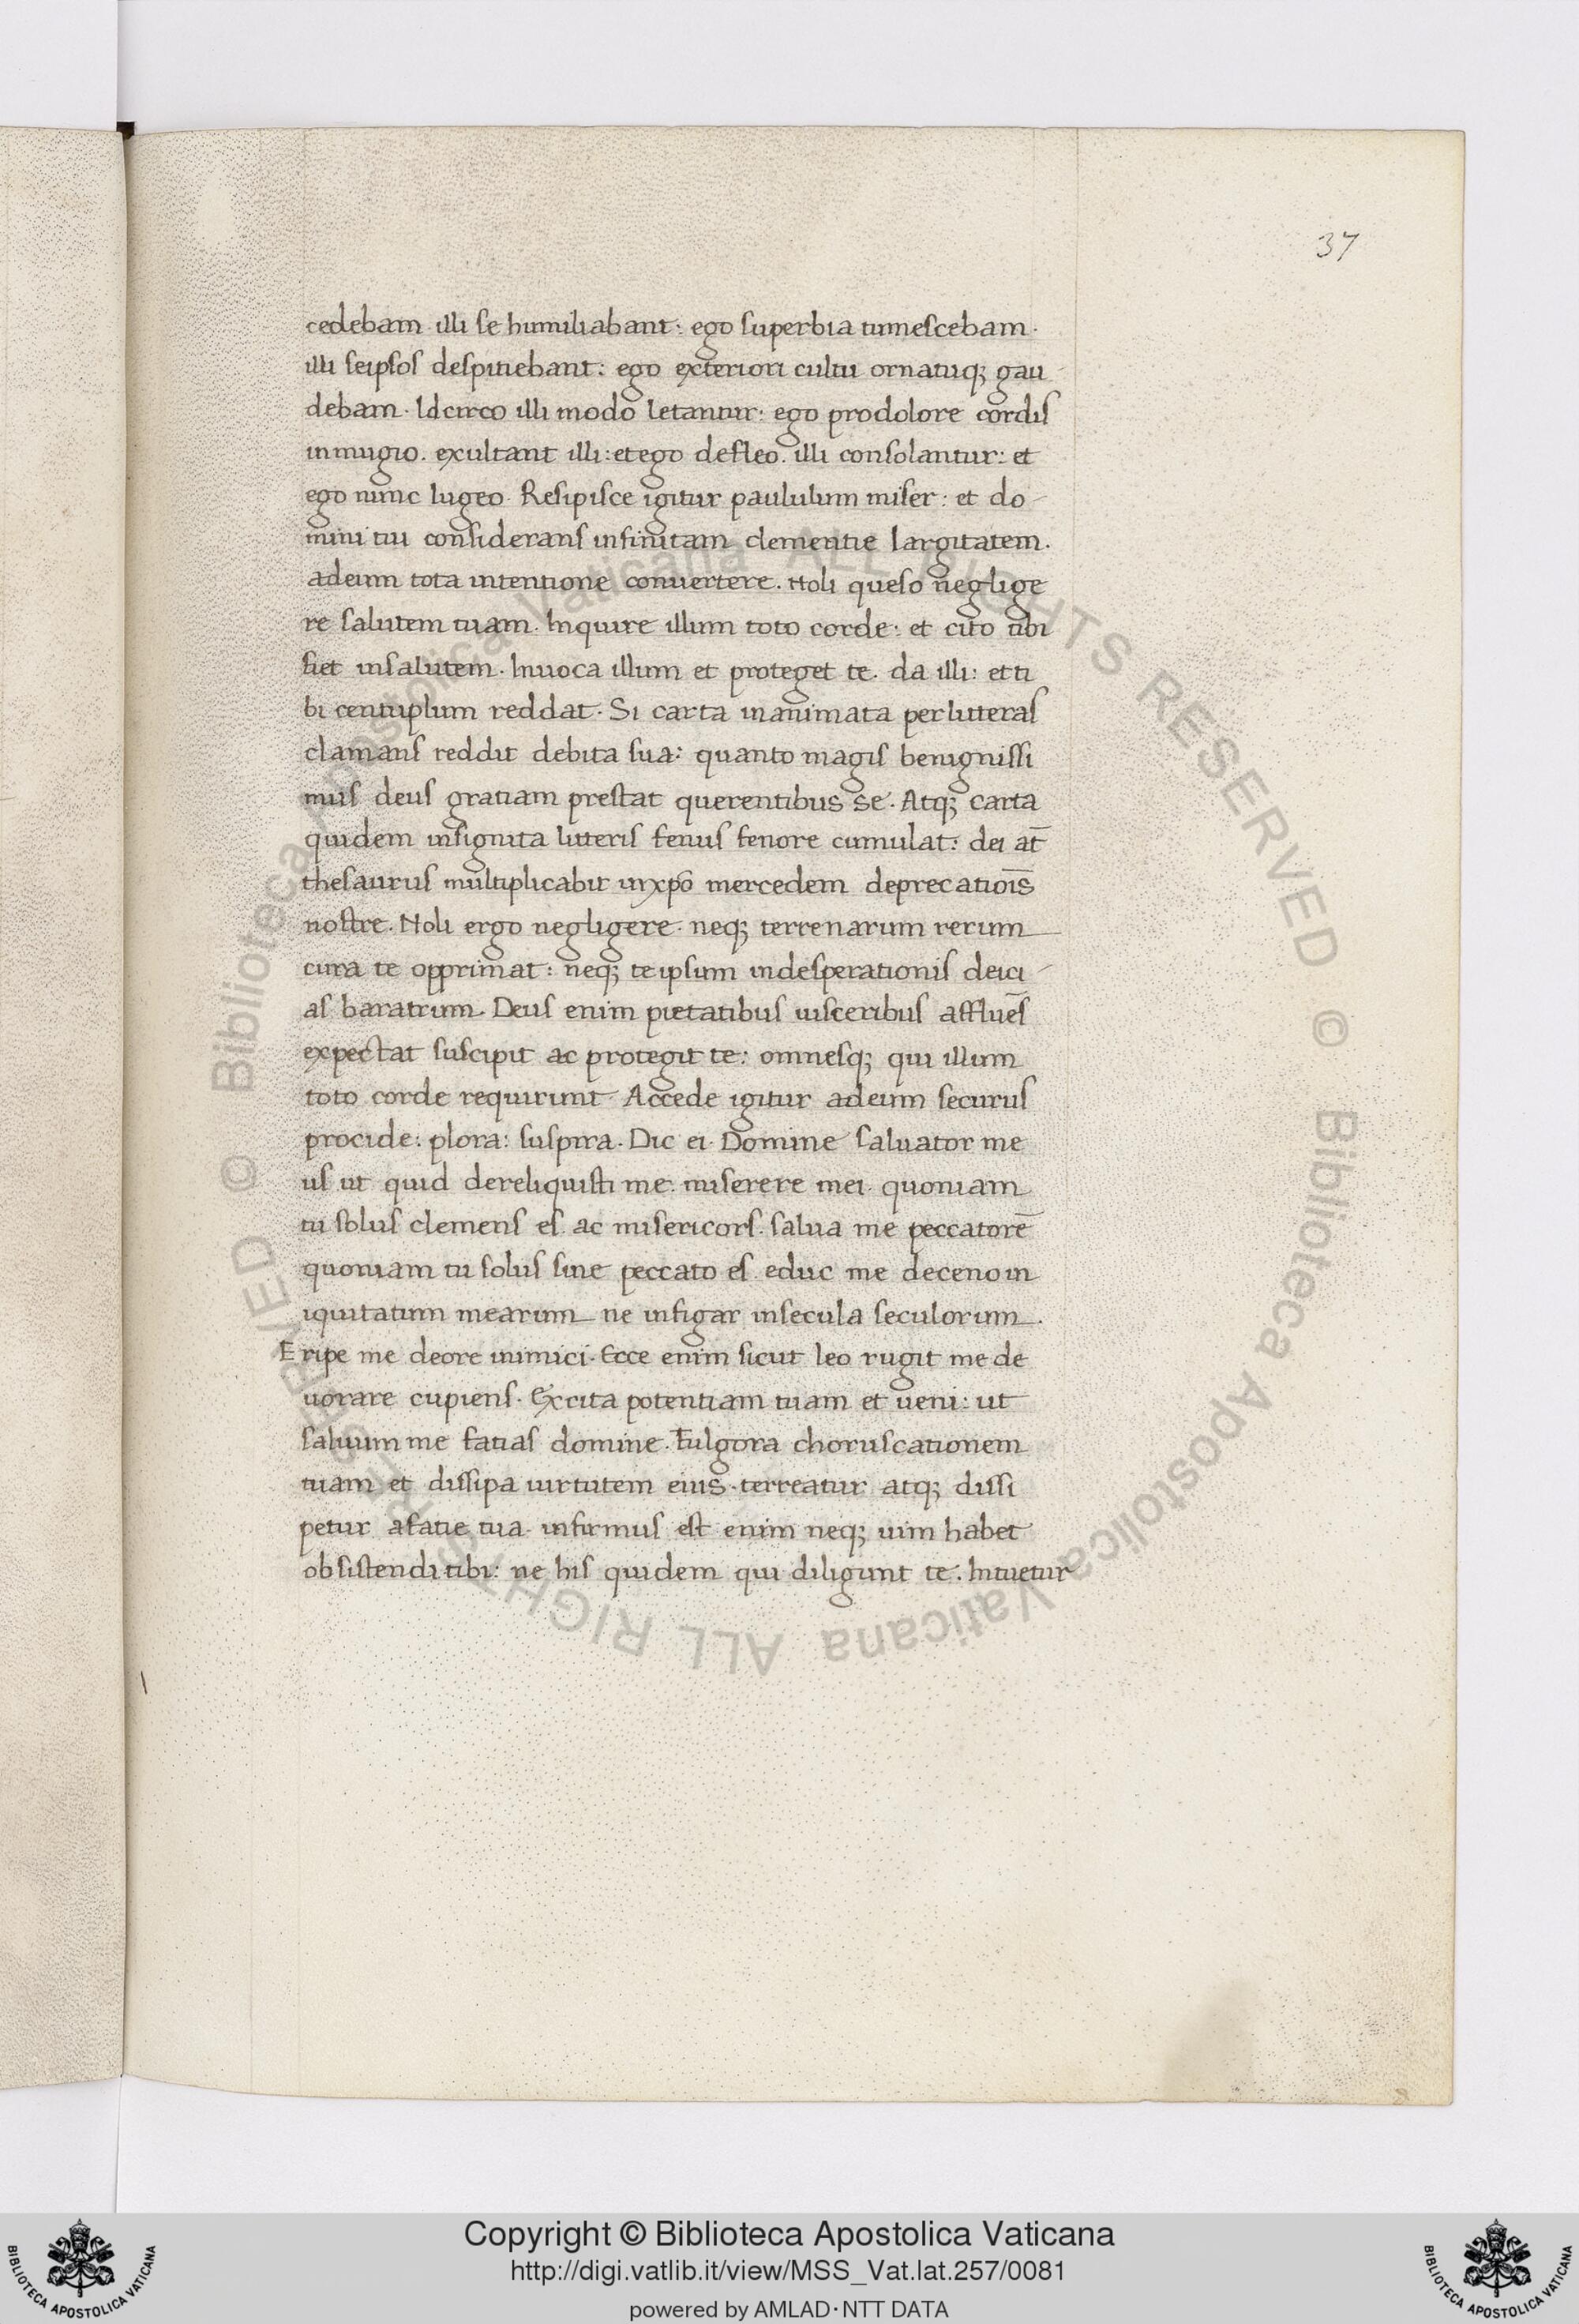 37
cedebam · illi se humiliabant: ego superbia tumescebam ·
illi seipsos despitiebant: ego exteriori cultu ornatuq; gau-
debam · Idcirco illi modo letantur: ego prodolore cordis
inmugio. exultant illi: et ego defleo. illi consolantur: et
ego nunc lugeo. Resipisce igitur paululum miser: et do-
mini tui considerans infinitam clementie largitatem.
adeum tota intentione convertere. Noli queso neglige
re salutem tuam. Inquire illum toto corde: et cito tibi
fiet insalutem. Invoca illum et proteget te. da illi: et ti
bi centuplum reddat. Si carta inanimata perlitteras
clamans reddit debita sua: quanto magis benignissi
mus deus gratiam prestat querentibus se. Atq; carta
quidem insignita litteris fenus fenore cumulat: dei at̄
thesaurus multiplicabit inxp̄o mercedem deprecatiōis
nostre. Noli ergo negligere. neq; terrenarum rerum
cura te opprimat: neq; te ipsum indesperationis deici-
as baratrum. Deus enim pietatibus visceribus affluēs
expectat suscipit ac protegit te: omnesq; qui illum
toto corde requirunt. Accede igitur adeum securus
procide: plora: suspira. Dic ei. Domine salvator me
us ut quid dereliquisti me. miserere mei. quoniam
tu solus clemens es ac misericors. salva me peccatorē
quoniam tu solus sine peccato es. educ me deceno in
iquitatum mearum ne infigar insecula seculorum.
Eripe me deore inimici. Ecce enim sicut leo rugit me de
vorare cupiens. Excita potentiam tuam et veni: ut
salvum me fatias domine. Fulgora choruscationem
tuam et dissipa virtutem eius. terreatur atq; dissi
petur afatie tua. infirmus est enim neq; vim habet
obsistendi tibi: ne his quidem qui diligunt te. Intuetur
© Biblioteca Apostolica Vaticana ALL RIGHTS RESERVED
© Biblioteca Apostolica Vaticana ALL RIGHTS RESERVED
BIBLIOTECA APOSTOLICA VATICANA
Copyright © Biblioteca Apostolica Vaticana
http://digi.vatlib.it/view/MSS_Vat.lat.257/0081
powered by AMLAD·NTT DATA
BIBLIOTECA APOSTOLICA VATICANA